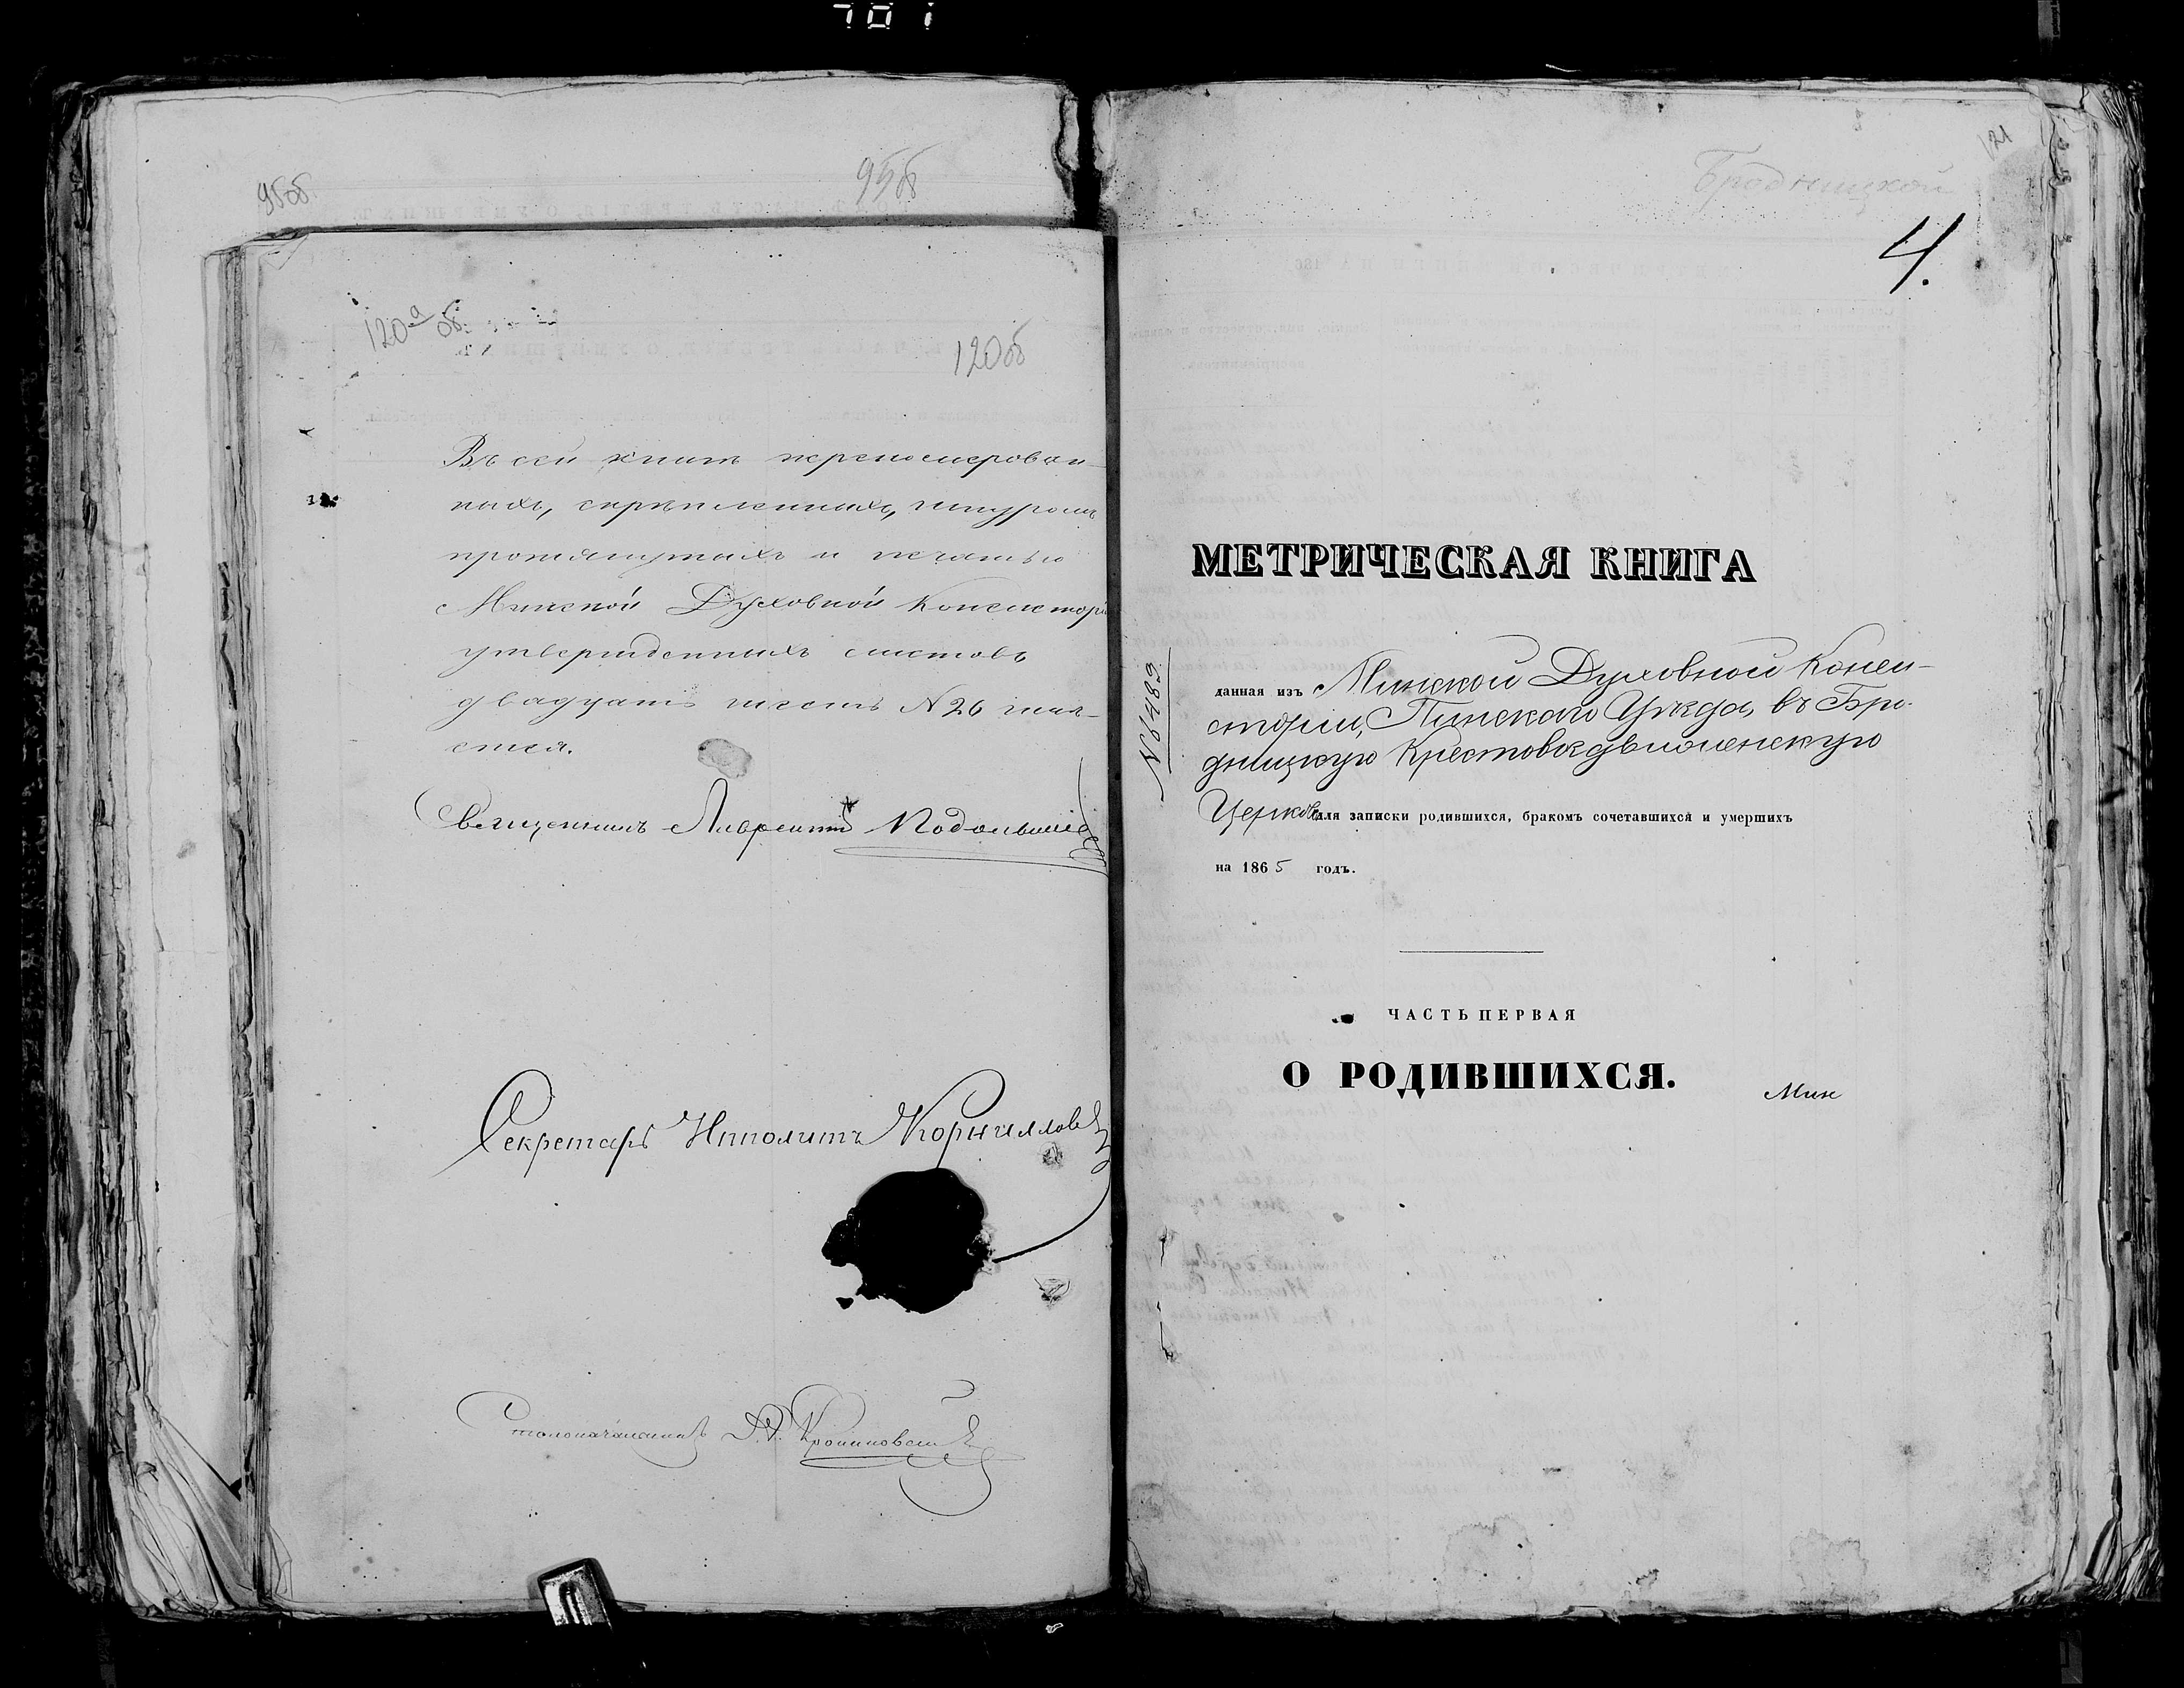 701
95об
95об.
120а об.
120об
Въ сей книгѣ перенумерован-
ныхъ, скрѣпленныхъ, шнуромъ
протянутыхъ и печатью
Минской Духовной Консисторі
утвержденныхъ листовъ
двадцать шесть № 26 чит-
ется.
Священникъ Лаврентій
Секретарь Ипполитъ Корниллов
Столоначальникъ
121
Бродницкой
4.
МЕТРИЧЕСКАЯ КНИГА
№ 6489
данная изъ Минской Духовной Конси-
сторіи, Пинскаго Уѣзда, въ Бро-
дницкую Крестовоздвиженскую
Церковь для записки родившихся, бракомъ сочетавшихся и умершихъ
на 1865 годъ.
ЧАСТЬ ПЕРВАЯ
О РОДИВШИХСЯ.
Мин